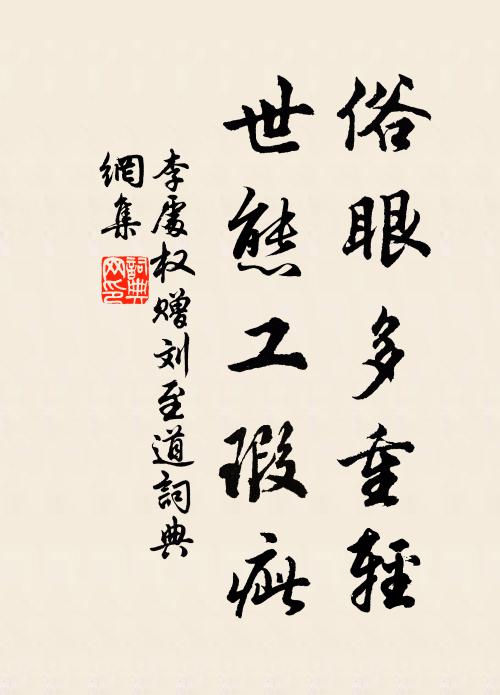 俗眼多重輕
世態工瑕疵
李處权赠刘至道詞典
網集
詞典網印